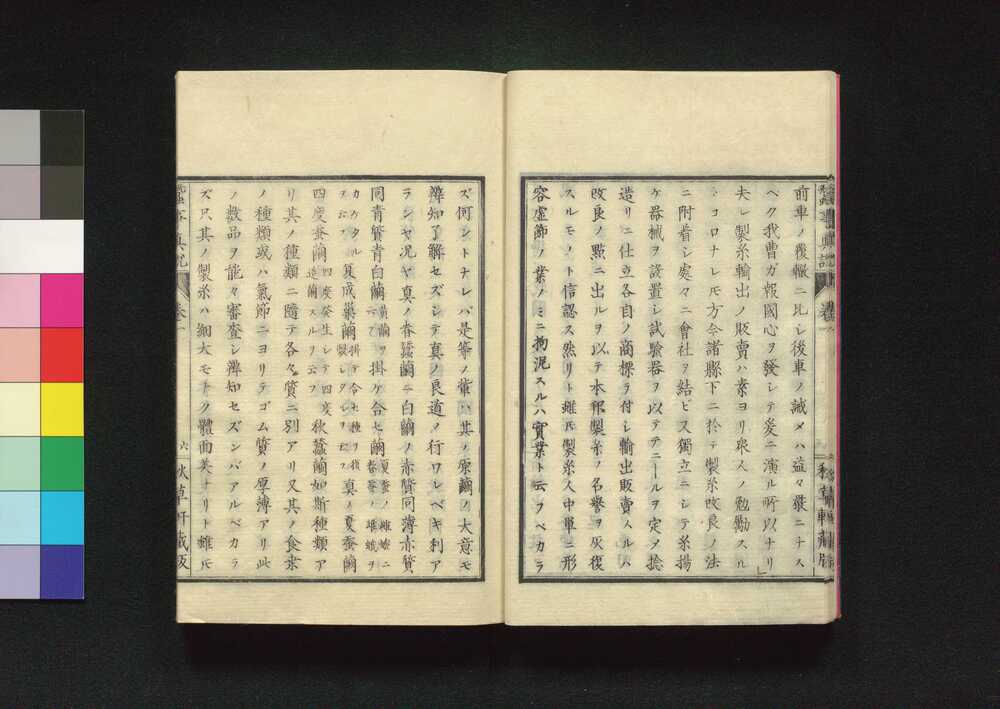 前車ノ覆轍ニ比レ後車ノ誡メハ益々嚴ニナス
ヘク我曹ガ報國心ヲ發シテ爰ニ演ル所以ナリ
夫レ製糸輸出ノ販賣ハ素ヨリ衆人ノ勉勵スル
トコロナレ𪜈方今諸縣下ニ於テ製糸改良ノ法
ニ附着シ處々ニ會社ヲ結ビ又獨立ニシテ糸揚
ケ器械ヲ設置シ試驗器ヲ以テテニールヲ定メ捻
造リニ仕立各自ノ商標ヲ付シ輸出販賣スルハ
改良ノ點ニ出ルヲ以テ本邦製糸ノ名譽ヲ恢復
スルモノト信認ス然リト雖𪜈製糸人中單ニ形
容虚飾ノ業ノミニ拘泥スルハ實業ト云フベカラ
ズ何ントナレバ是等ノ輩ハ其ノ原繭ノ大意モ
辨知了解セズシテ真ノ良道ノ行ワレベキ利ア
ランヤ况ヤ真ノ春蠶繭ニ白繭ノ赤質同薄赤質
同青質青白繭 黄繭ヲ掛ケ合セ繭 夏蚕ノ雌蛾ニ春蚕ノ雄蛾ヲ
カケタルヲ云フ 夏成巣繭 真ノ夏蚕繭
四度蚕繭 四度發生シテ四度造繭スルヲ云フ 秋蠶繭如斯種類ア
リ其ノ種類ニ隨テ各々質ニ別アリ又其ノ食桒
ノ種類或ハ氣節ニヨリテゴム質ノ厚薄アリ此
ノ数品ヲ能々審査シ辨知セズンバアルベカラ
ズ只其ノ製糸ハ細大モトク體面美ナリト雖𪜈
蠶事真説 卷一 六 秋草軒藏版